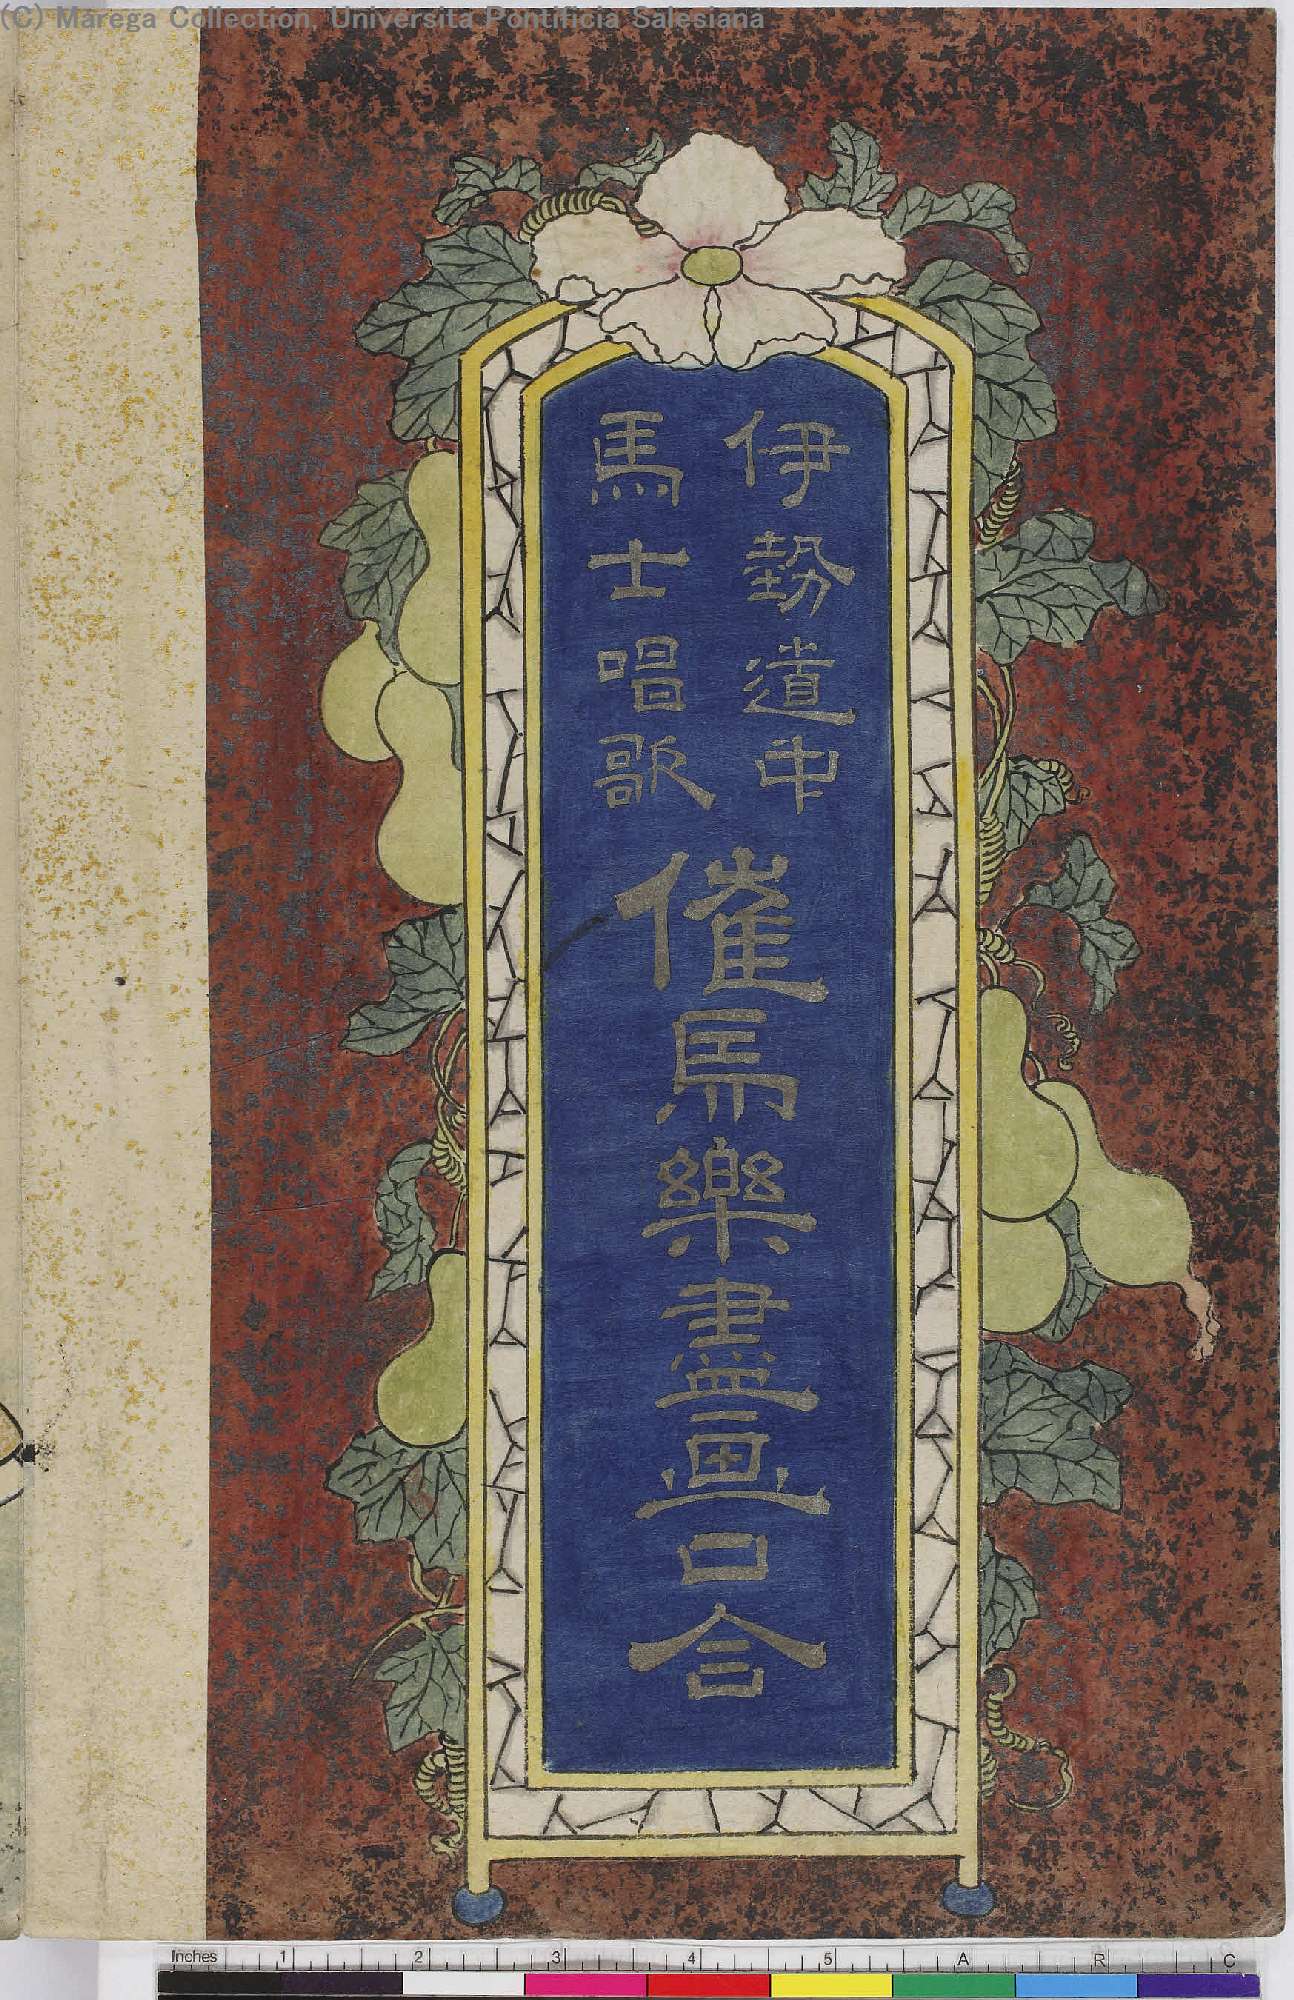 (C) Marega Collection, Universita Pontificia Salesiana
伊勢道中
馬士唱歌
催馬樂盡畫口合
Inches 1 2 3 4 5 A R C